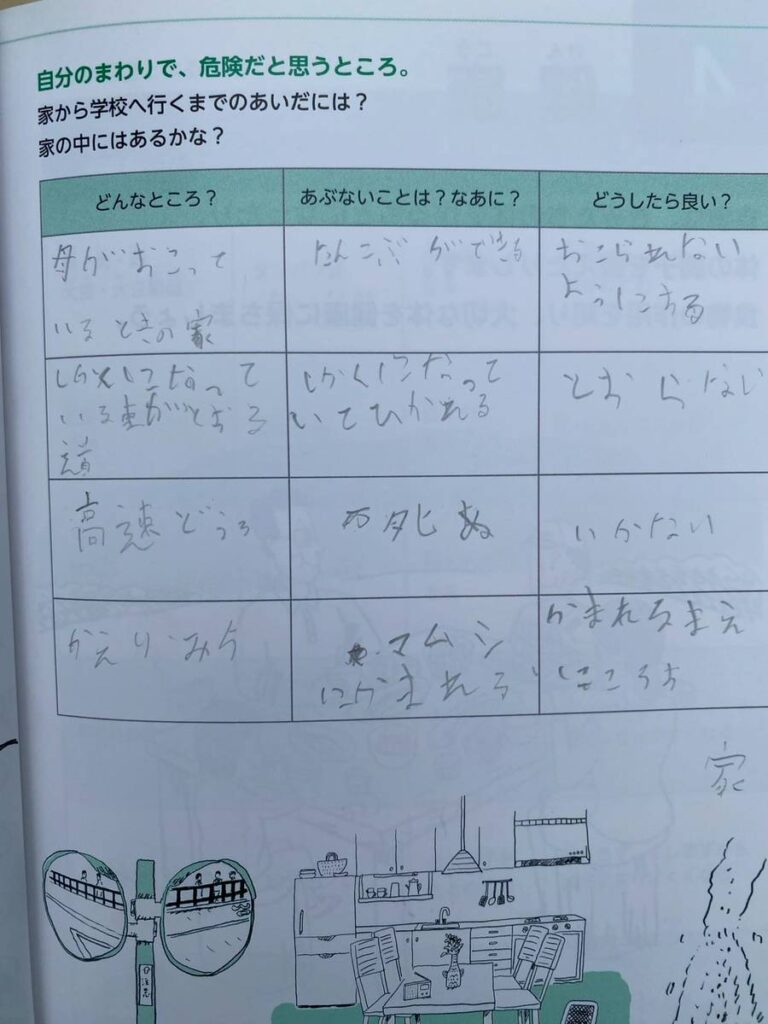 自分のまわりで、危険だと思うところ。
家から学校へ行くまでのあいだには？
家の中にはあるかな？
どんなところ？
あぶないことは？なあに？
どうしたら良い？
母がおこって
いるときの家
たんこぶができる
おこられない
ようにする
しかくになって
いる車がとおる
道
しかくになって
いてひかれる
とおらない
高速どうろ
死ぬ
いかない
かえりみち
マムシ
にかまれる
かまれるまえ
にころす
家